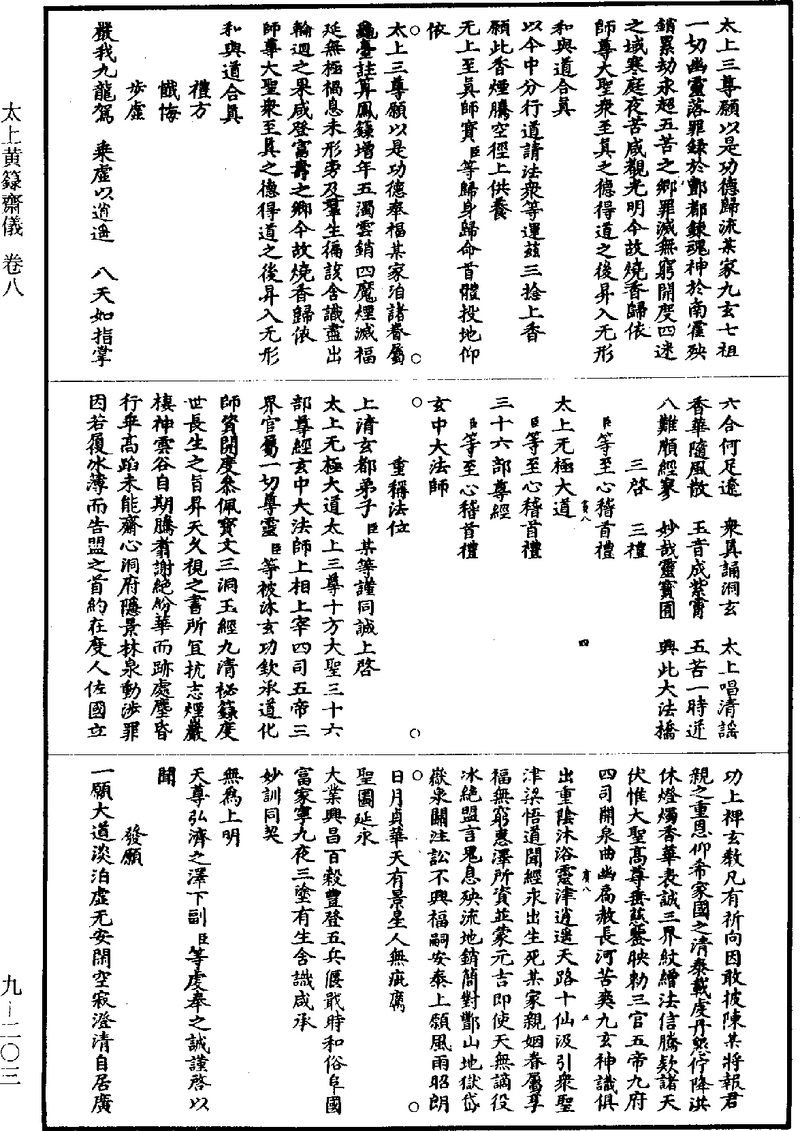 太上三尊願以是功德歸流某家九玄七祖
一切幽靈落罪錄於酆都鍊魂神於南霍殃
銷累劫永超五苦之鄉罪滅無窮開度四迷
之域寒庭夜苦咸覩光明今故燒香歸依
師尊大聖衆至真之德得道之後昇入无形
和與道合真
以今中分行道請法衆等運茲三捻上香
願此香煙騰空徑上供養
无上至真師寶臣等歸身歸命首體投地仰
依
太上三尊願以是功德奉福某家洎諸眷屬
龜臺註筭鳳籙增年五濁雲銷四魔煙滅福
延無極禍息未形旁及羣生徧該含識盡出
輪迴之果咸登富壽之鄉今故燒香歸依
師尊大聖衆至真之德得道之後昇入无形
和與道合真
禮方
懺悔
步虛
嚴我九龍駕 乘虛以逍遥 八天如指掌
六合何足遼 衆真誦洞玄 太上唱清謠
香華隨風散 玉音成紫霄 五苦一時迸
八難順經寥 妙哉靈寶囿 興此大法橋
三啓 三禮
臣等至心稽首禮
太上无極大道
臣等至心稽首禮
三十六部尊經
臣等至心稽首禮
玄中大法師
重稱法位
上清玄都弟子臣某等謹同誠上啓
太上无極大道太上三尊十方大聖三十六
部尊經玄中大法師上相上宰四司五帝三
界官屬一切尊靈臣等被沐玄功欽承道化
師資開度叅佩寶文三洞玉經九清祕籙度
世長生之旨昇天久視之書所宜抗志煙巖
棲神雲谷自期騰翥謝絶紛華而跡處塵昏
行乖高蹈未能齋心洞府隱景林泉動涉罪
因若履冰薄而告盟之首約在度人佐國立
功上禆玄教凡有祈向因敢披陳某將報君
親之重恩仰希家國之清泰載虔丹懇佇降洪
休燈燭香華表誠三界紋繒法信騰欵諸天
伏惟大聖高尊垂慈鑒映勑三官五帝九府
四司開泉曲幽扄赦長河苦爽九玄神識俱
出重陰沐浴靈津逍遥天路十仙汲引衆聖
津梁悟道聞經永出生死某家親姻眷屬享
福無窮惠澤所資並蒙元吉即使天無謫役
冰絶盟言鬼息殃流地銷簡對酆山地獄岱
嶽泉關注訟不興福嗣安泰上願風雨昭朗
日月貞華天有景星人無疵癘
聖圖延永
大業興昌百穀豐登五兵偃戢時和俗阜國
富家寧九夜三塗有生含識咸承
妙訓同契
無爲上明
天尊弘濟之澤下副臣等虔奉之誠謹啓以
聞
發願
一願大道淡泊虛无安閑空寂澄清自居廣
太上黄籙齋儀 卷八
九—二〇三